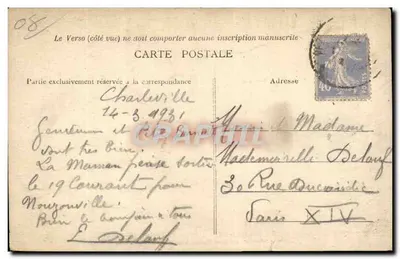 08
Le Verso (côté vue) ne doit comporter aucune inscription manuscrite
CARTE POSTALE
Partie exclusivement réservée à la correspondance
Adresse
Charleville
14-3-1931
et
sont très bien.
La Maman pense sortir
le 19 Courant pour
Nouzonville.
Bien le bonjour à tous
E Delauf
et Madame
Mademoiselle Delauf
30 Rue
Paris XIV
40